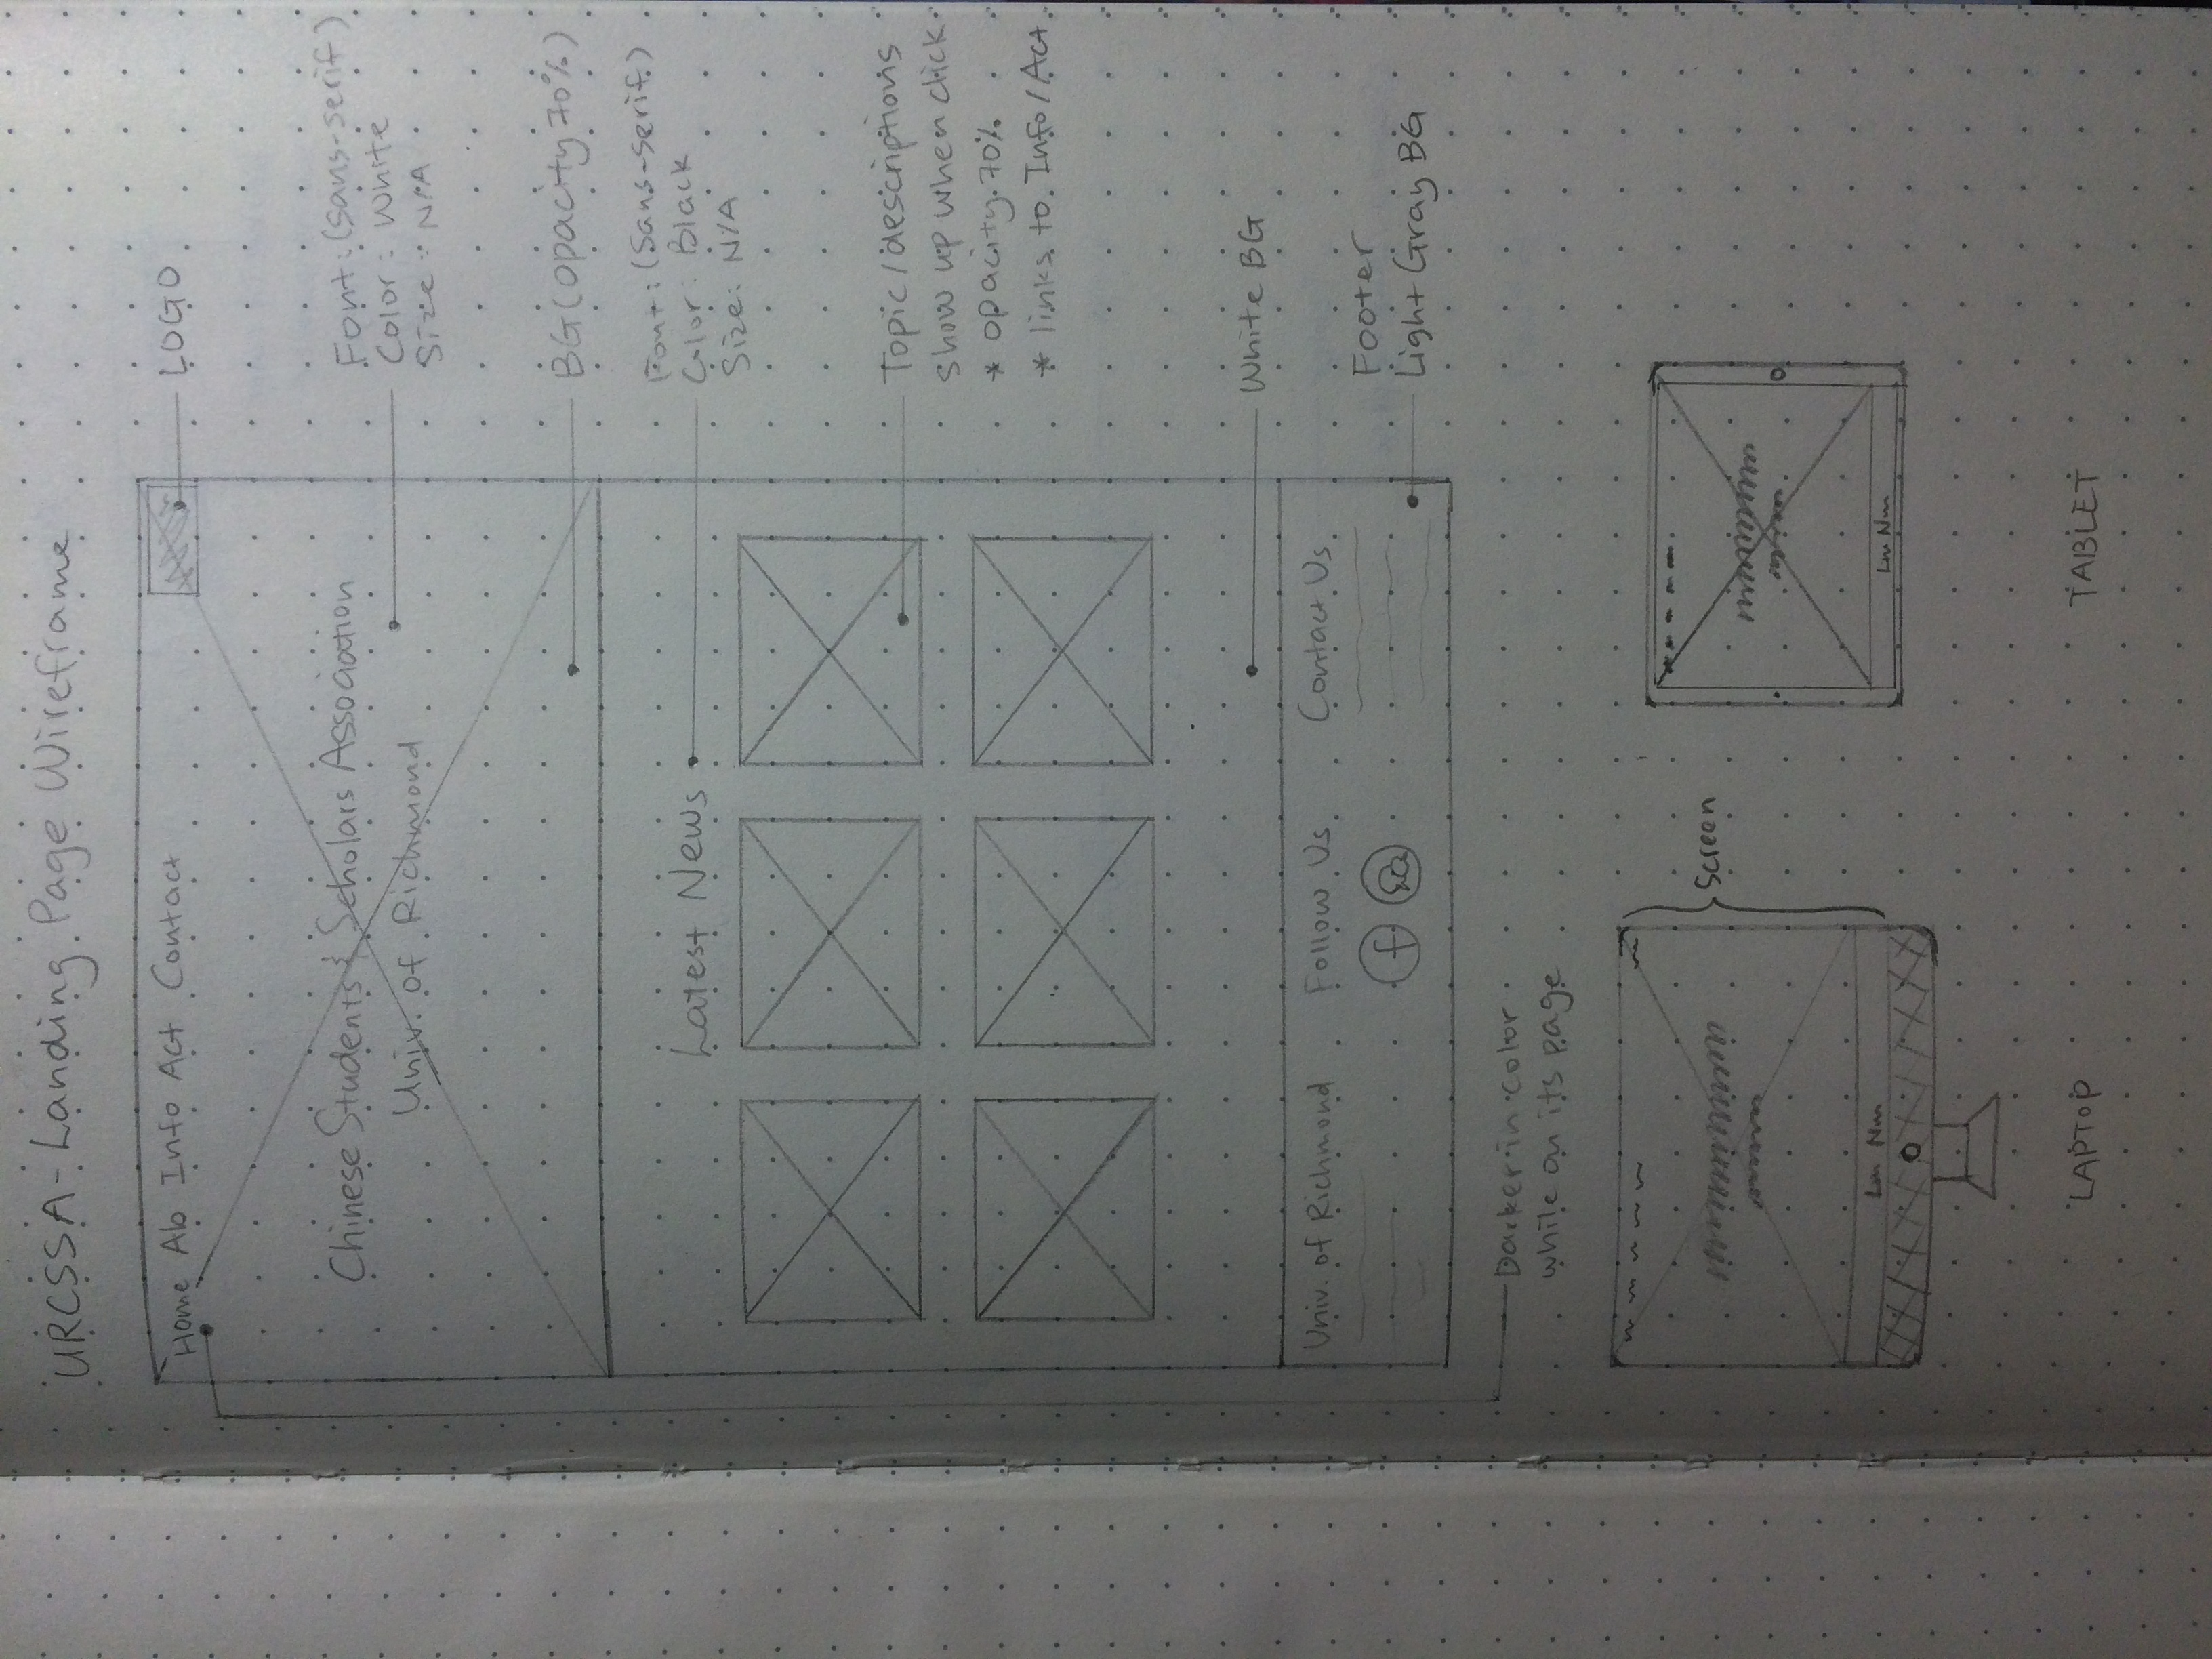 URCSSA - Landing Page Wireframe
Home Ab Info Act Contact
LOGO
Chinese Students & Scholars Association
Univ. of Richmond
Font: (Sans-serif)
Color: White
Size: N/A
BG (opacity 70%)
Latest News
Font: (Sans-serif)
Color: Black
Size: N/A
Topic/descriptions
show up when click
* opacity 70%
* links to Info/Act
White BG
Univ. of Richmond Follow Us Contact Us
f
Footer
Light Gray BG
Darker in color
while on its page
Screen
LAPTOP
TABLET